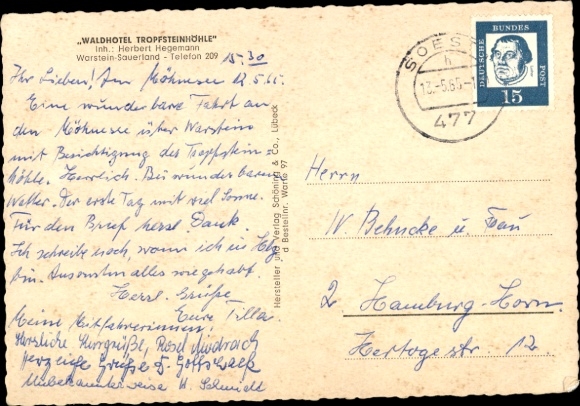 „WALDHOTEL TROPFSTEINHÖHLE"
Inh.: Herbert Hegemann
Warstein-Sauerland - Telefon 209
15-30
Ihr Lieben! Am Möhnesee 12.5.65.
Eine wunderbare Fahrt an
den Möhnesee über Warstein
mit Besichtigung des Tropfstein-
höhle. Herrlich. Bei wunderbarem
Wetter. Der erste Tag mit viel Sonne.
Für den Brief herzl. Dank.
Ich schreibe noch, wann ich in Hbg
bin. Ansonsten alles wie gehabt.
Herzl. Grüße
Eure Tilla.
Meine Mitfahrerinnen:
Herzliche Kurgrüße, Rosel
Herzliche Grüße
Unbekannterweise K. Schmidt
Hersteller und Verlag Schöning & Co., Lübeck
d Bestellnr. Warte 97
SOEST
h
13.-5.65.-
477
DEUTSCHE
BUNDES
POST
15
Herrn
W. Behncke u. Frau
2 Hamburg-Horn
Hertogestr. 12.